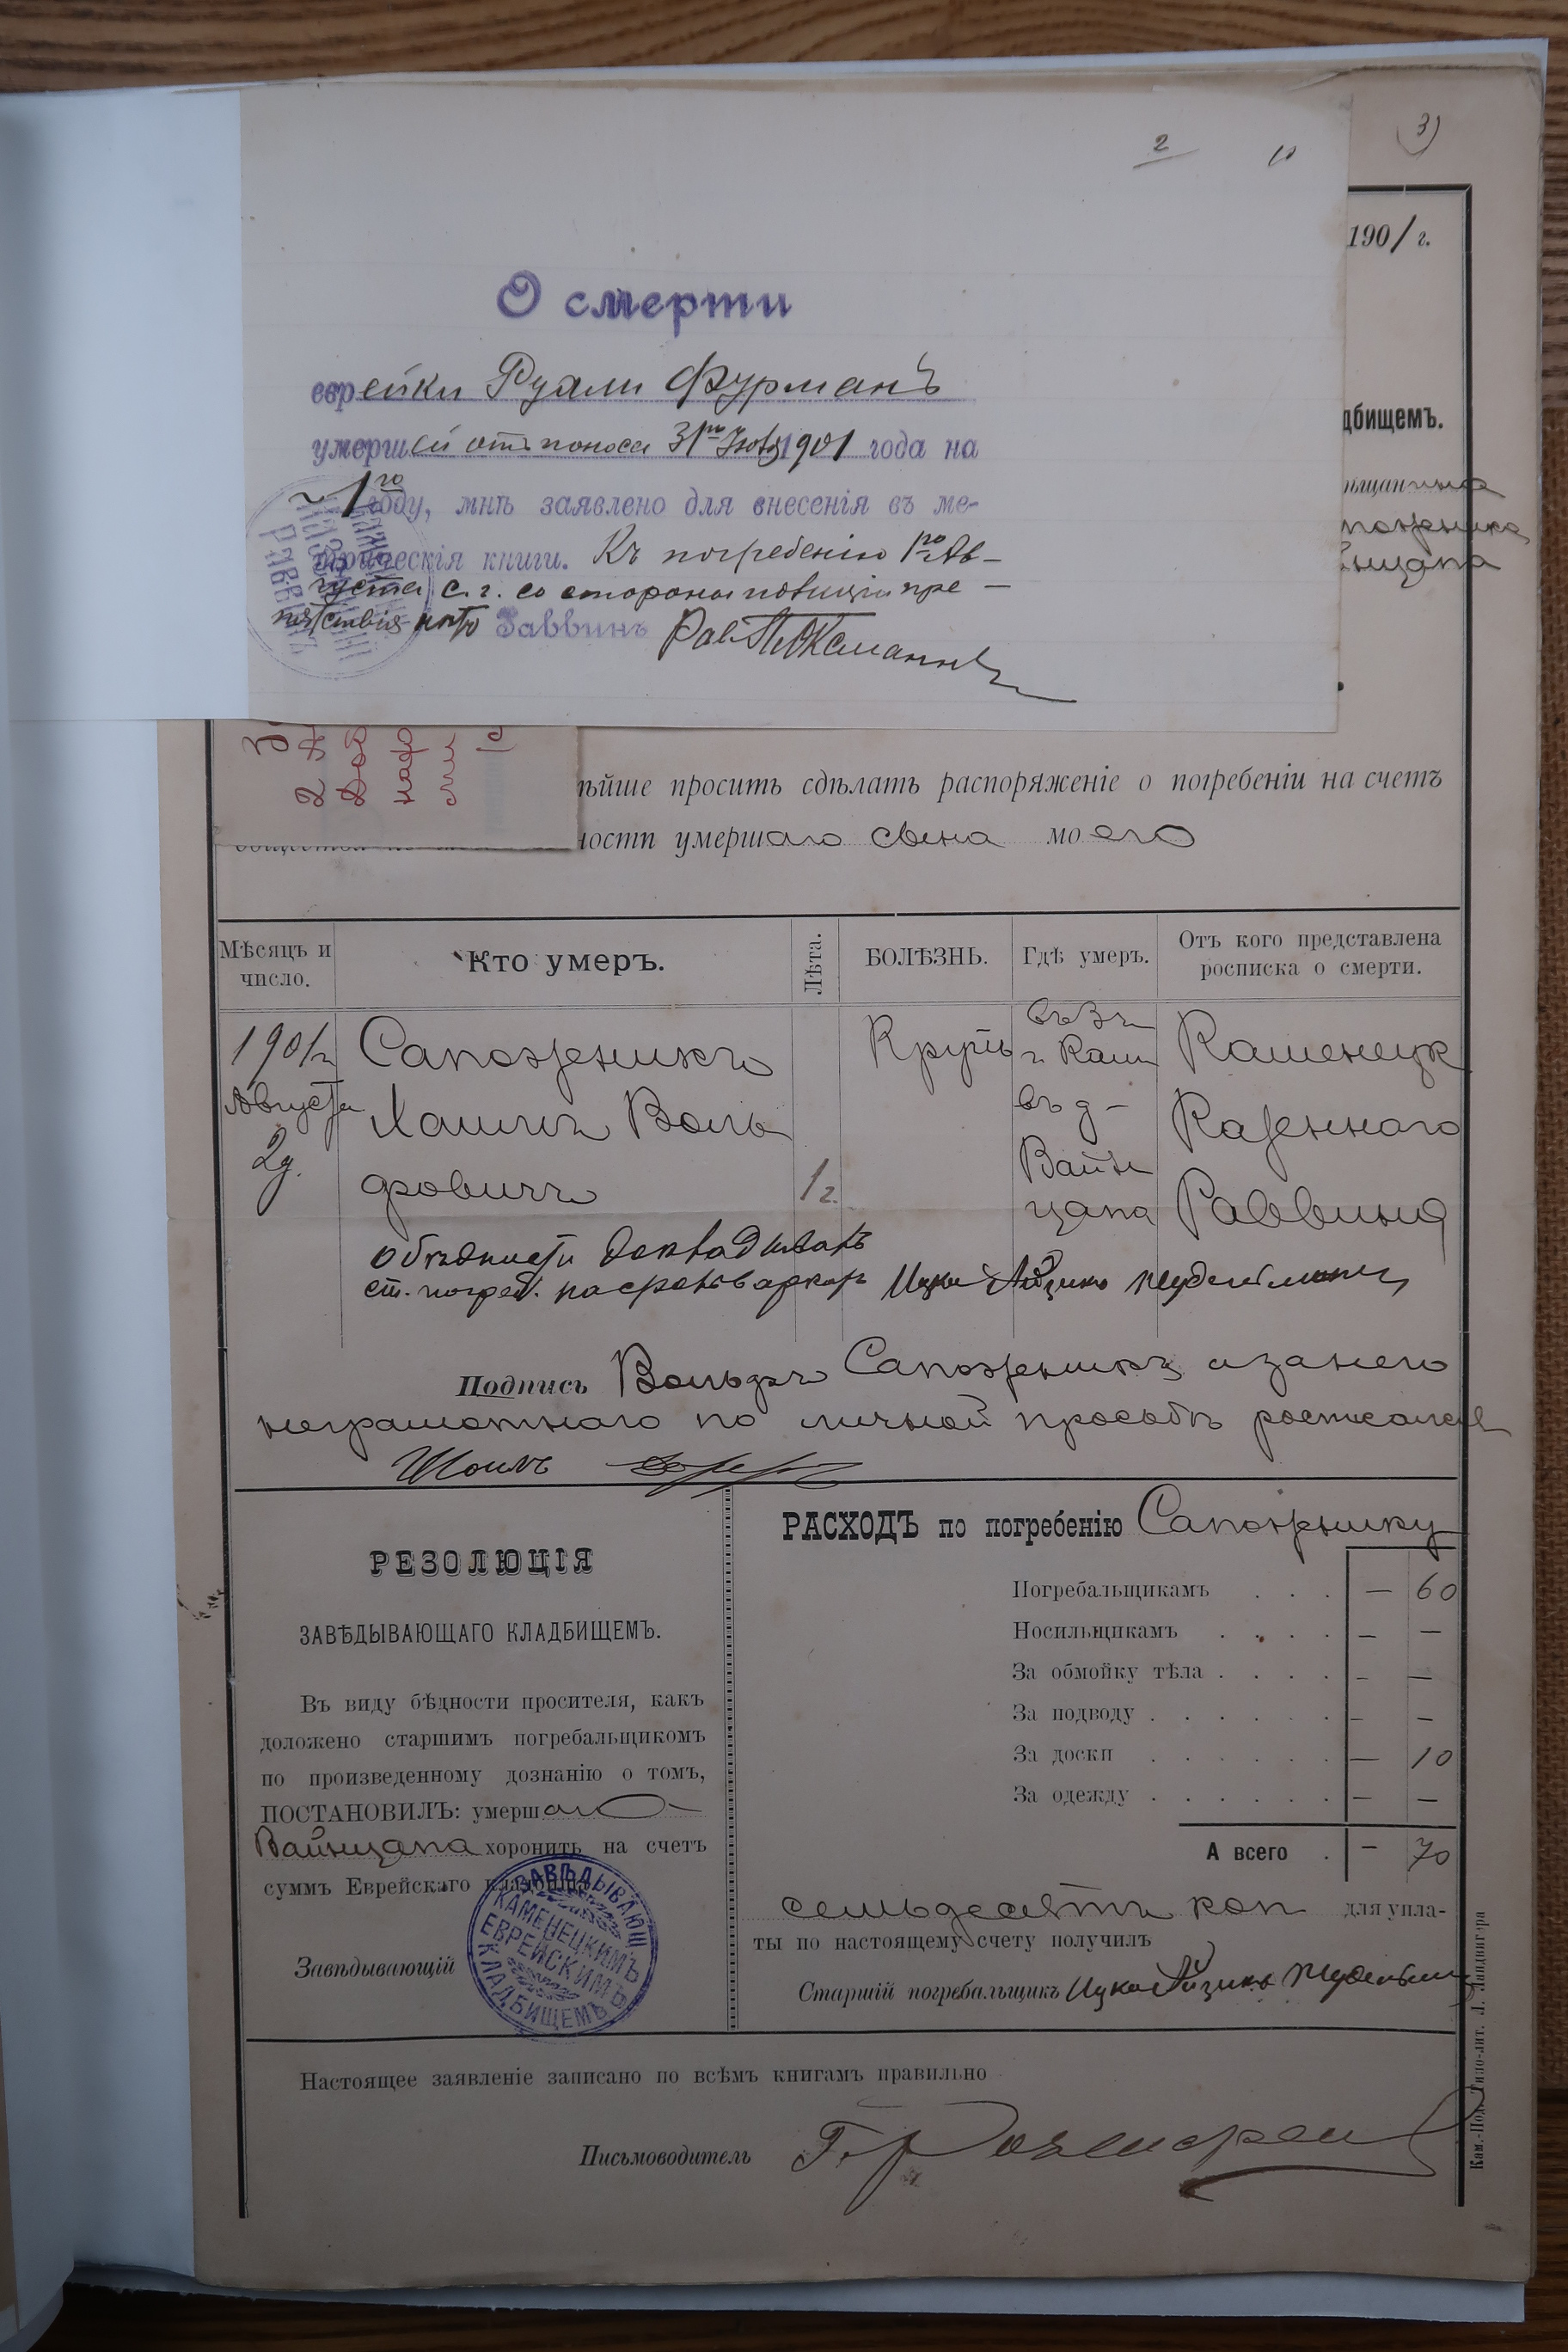 2
3)
190/ г.
О смерти
еврейки Рухли Фурманъ
умершей отъ поноса 31го Июля 1901 года на
1го году, мнѣ заявлено для внесенія въ ме-
трическія книги. Къ погребенію 1го Ав-
густа с. г. со стороны полиціи пре-
пятствія нѣтъ Раввинъ
дбищемъ.
ѣйше просить сдѣлать распоряженіе о погребеніи на счетъ
ности умершаго сына моего
Мѣсяцъ и число.
Кто умеръ.
Лѣта.
БОЛѢЗНЬ.
Гдѣ умеръ.
Отъ кого представлена росписка о смерти.
1901 г. Августа 2 д.
Сапожникъ
Хаимъ Воль
фовичъ
1 г.
Крупъ
г. Кам
въ д-
Вайн
цапа
Каменецк
Казеннаго
Раввина
о бѣдности докладывалъ
ст. погреб.
Ицко Айзикъ
Подпись Вольфъ Сапожникъ а за него
неграмотнаго по личной просьбѣ
РЕЗОЛЮЦІЯ
ЗАВѢДЫВАЮЩАГО КЛАДБИЩЕМЪ.
Въ виду бѣдности просителя, какъ
доложено старшимъ погребальщикомъ
по произведенному дознанію о томъ,
ПОСТАНОВИЛЪ: умершаго
Вайнцапа хоронить на счетъ
суммъ Еврейскаго кладбища
Завѣдывающій
ЗАВѢДЫВАЮЩ.
КАМЕНЕЦКИМЪ
ЕВРЕЙСКИМЪ
КЛАДБИЩЕМЪ
РАСХОДЪ по погребенію Сапожнику
Погребальщикамъ . . . — 60
Носильщикамъ . . . . — —
За обмойку тѣла . . . . — —
За подводу . . . . . . — —
За доски . . . . . . — 10
За одежду . . . . . . — —
А всего . — 70
семьдесятъ коп для упла-
ты по настоящему счету получилъ
Старшій погребальщикъ Ицко Айзикъ
Настоящее заявленіе записано по всѣмъ книгамъ правильно
Письмоводитель
Кам.-Под. Типо-лит. Л. Ландвигера